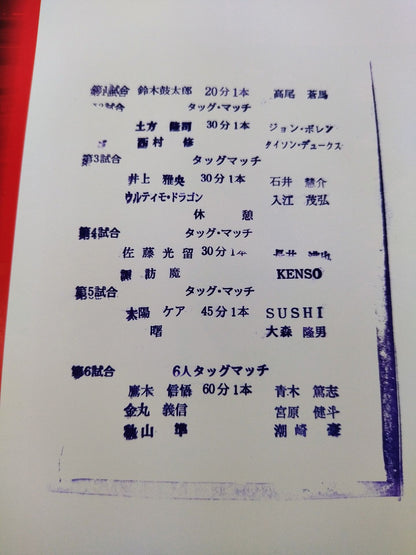 第1試合 鈴木鼓太郎 20分1本 高尾 蒼馬
試合 タッグ・マッチ
土方 隆司 30分1本 ジョン・ボレン
西村 修 タイソン・デュークス
第3試合 タッグマッチ
井上 雅央 30分1本 石井 慧介
ウルティモ・ドラゴン 入江 茂弘
休 憩
第4試合 タッグ・マッチ
佐藤光留 30分1本 長井
諏訪魔 KENSO
第5試合 タッグ・マッチ
太陽 ケア 45分1本 SUSHI
曙 大森 隆男
第6試合 6人タッグマッチ
鷹木 信悟 60分1本 青木 篤志
金丸 義信 宮原 健斗
秋山 準 潮崎 豪